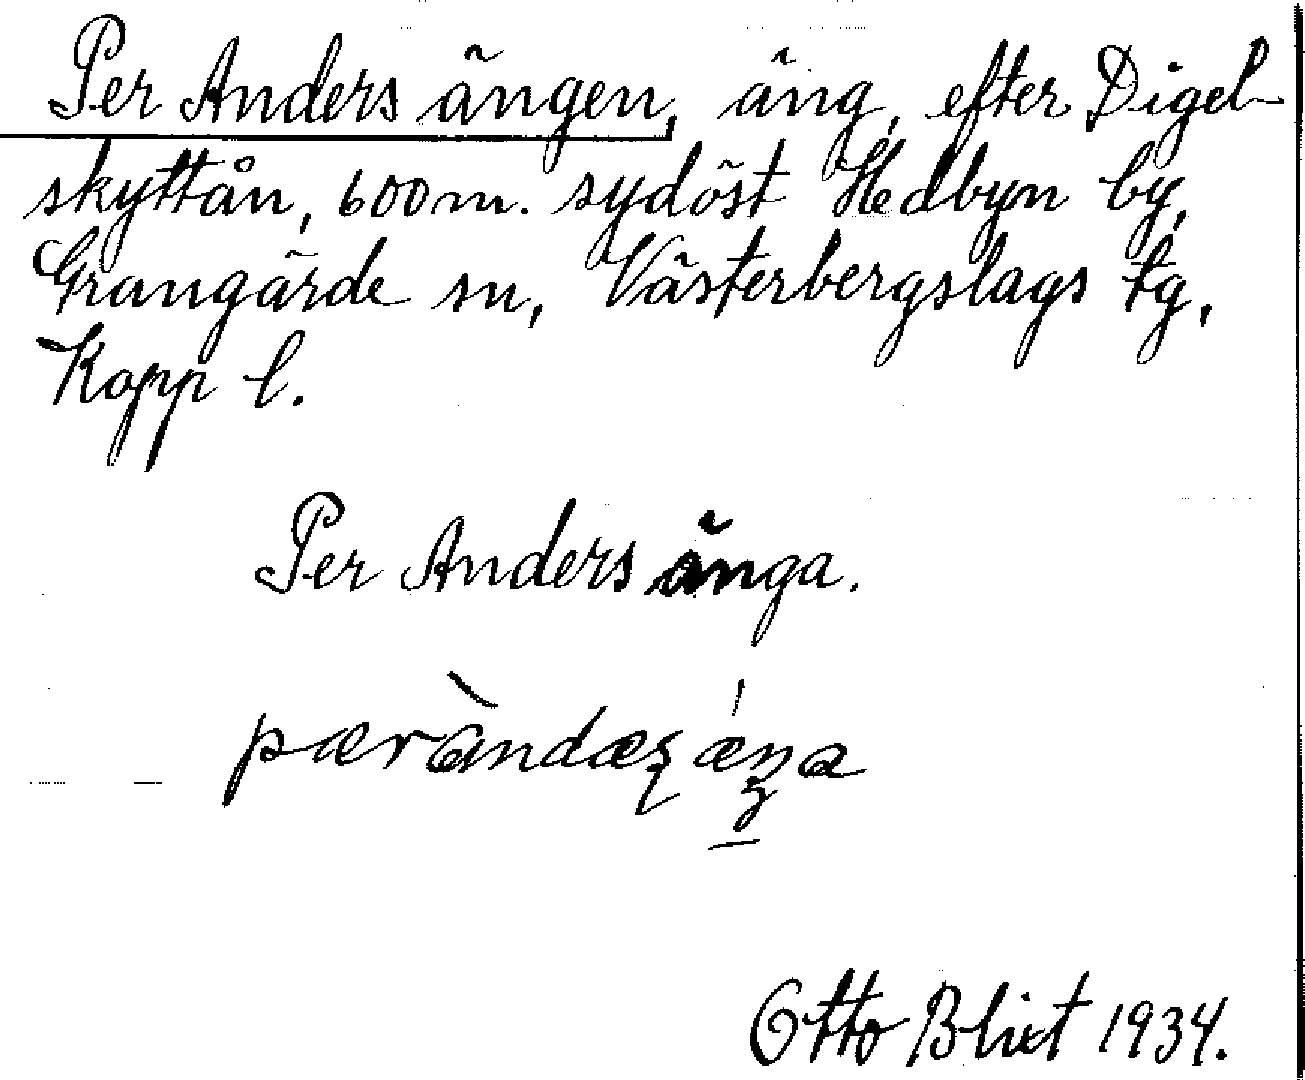 Per Anders ängen, äng, efter Digel-
skyttån, 600 m. sydöst Hedbyn by,
Grangärde sn, Västerbergslags tg,
Kopp l.
Per Anders änga.
Otto Blixt 1934.